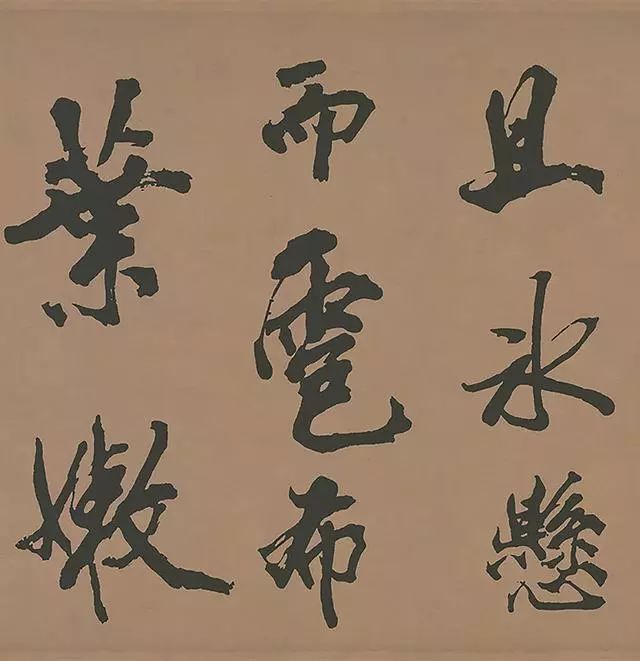 且氷懸
而雹布
葉嫩